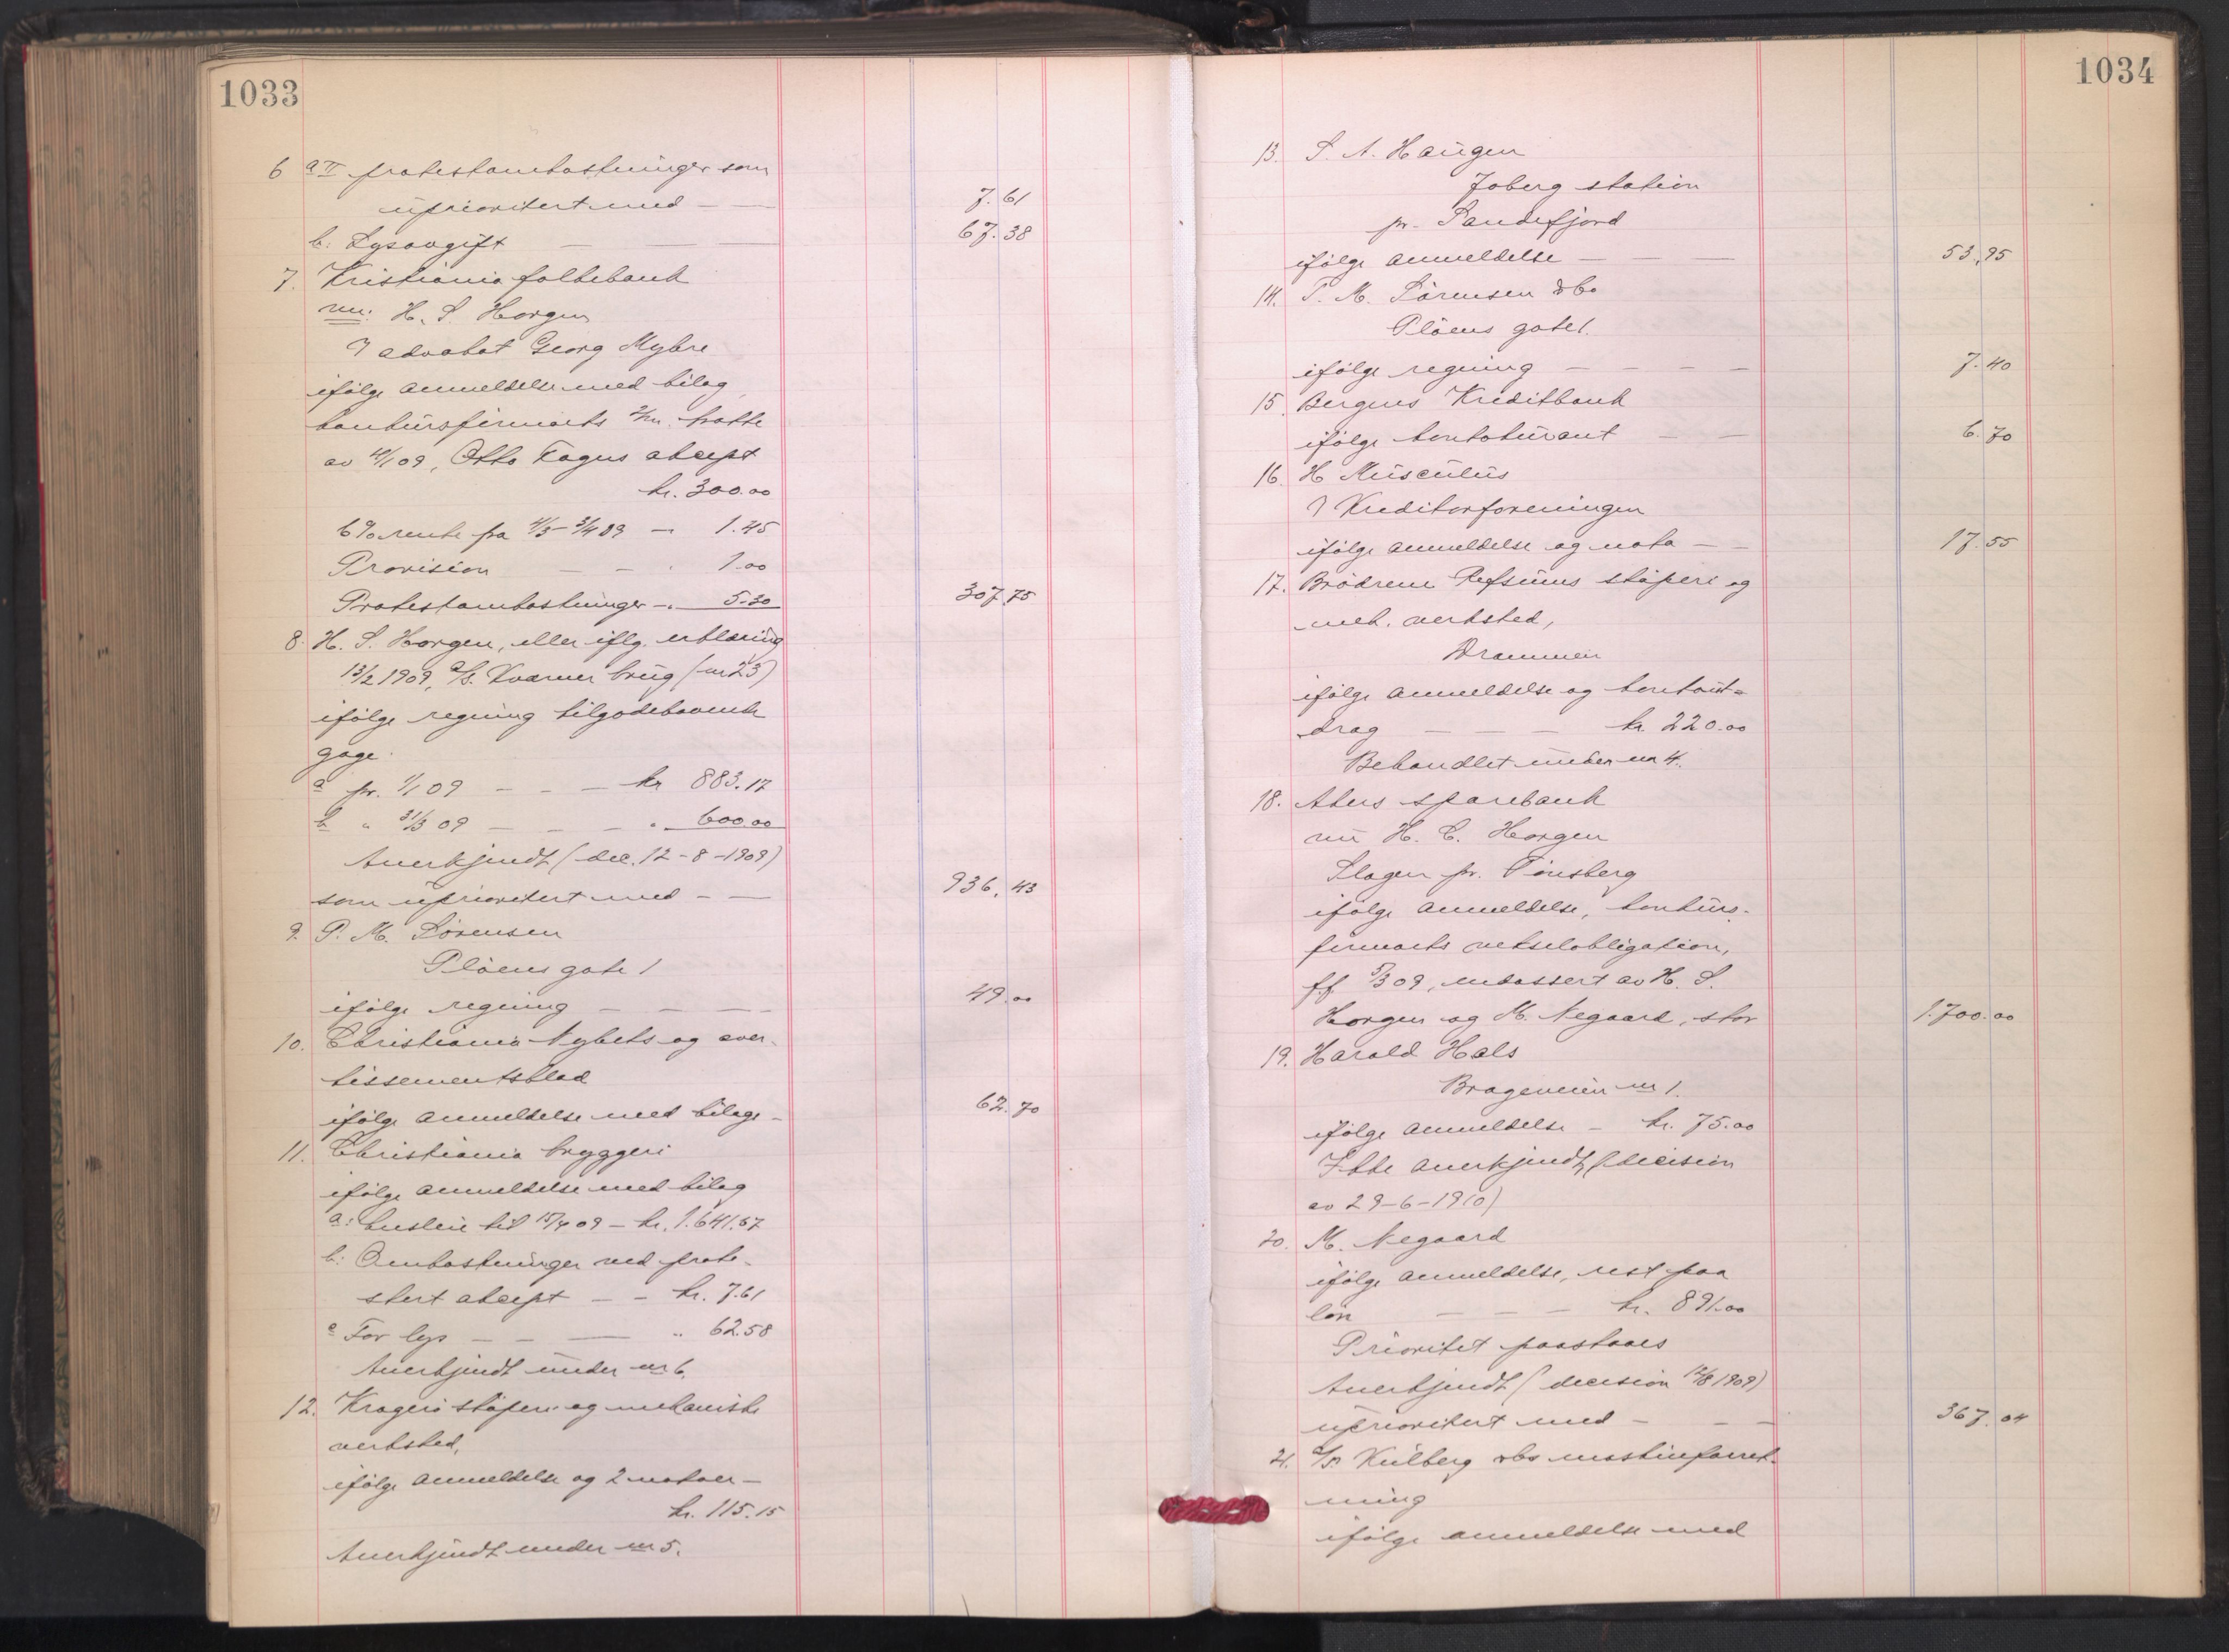 1033
6 a II protestomkostninger som
uprioritert med — 7.61
b: Lysavgift — — — 67.38
7. Kristiania folkebank
nu: H. S. Horgen
v advokat Georg Myhre
ifölge anmeldelse med bilag,
konkursfirmaets 2/m. tratte
av 4/1 09, Otto Fagers aksept
kr. 300.00
6% rente fra 4/3 - 3/4 09 — 1.45
Provision — — " 1.00
Protestomkostninger —" 5.30 307.75
8. H. S. Horgen, eller iflg. erklæring
13/2 1909, A/S. Kværner brug (nr 23)
ifölge regning tilgodehavende
gage.
a pr. 1/1 09 — — — kr 883.17
b " 31/3 09 — — — " 600.00
Anerkjendt (dec. 12-8-1909)
som uprioritert med — — 936.43
9. P. M. Sörensen
Plöens gate 1
ifölge regning — — — — 49.00
10. Christiania Nyhets og aver-
tissementsblad
ifölge anmeldelse med bilage — 62.70
11. Christiania bryggeri
ifölge anmeldelse med bilag
a: husleie til 15/4 09 — kr. 1.641.67
b: Omkostninger ved prote-
stert aksept — — kr. 7.61
c For lys — — — " 62.58
Anerkjendt under nr 6.
12. Kragerö stöperi og mekaniske
verksted,
ifölge anmeldelse og 2 notaer —
kr. 115.15
Anerkjendt under nr 5.
1034
13. S. A. Haugen
Joberg station
pr. Sandefjord
ifölge anmeldelse — — — 53.95
14. P. M. Sörensen & Co
Plöens gate 1.
ifölge regning — — — — 7.40
15. Bergens Kreditbank
ifölge kontokurant — — 6.70
16. H Musculus
v Kreditorforeningen
ifölge anmeldelse og nota — — 17.55
17. Brödrene Refsums stöperi og
mek. verksted,
Drammen
ifölge anmeldelse og kontout-
drag — — — kr 220.00
Behandlet under nr 4.
18. Akers sparebank
nu H. C. Horgen
Slagen pr. Tönsberg
ifölge anmeldelse, konkurs-
firmaets vekselobligation,
f.f. 5/3 09, endossert av H. S.
Horgen og M. Negaard, stor 1.700.00
19. Harald Hals
Brageveien nr 1.
ifölge anmeldelse — kr. 75.00
Ikke anerkjendt (decision
av 29-6-1910)
20. M. Negaard
ifölge anmeldelse, rest paa
lön — — — kr. 891.00
Prioritet paastaaes
Anerkjendt (decision 12/8 1909)
uprioritert med — — — 367.04
21. A/S. Kulberg & Co maskinforret-
ning
ifölge anmeldelse med